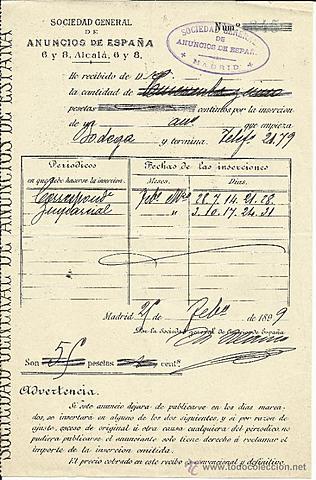 SOCIEDAD GENERAL
DE
ANUNCIOS DE ESPAÑA
6 y 8, Alcalá, 6 y 8.
Núm.
SOCIEDAD GENERAL
DE
ANUNCIOS DE ESPAÑA
MADRID
SOCIEDAD GENERAL DE ANUNCIOS DE ESPAÑA
He recibido de D.
la cantidad de
pesetas céntimos por la insercion
de un que empieza
Bodega y termina Telefº 2179
Periodicos
en que debe hacerse la insercion.
Fechas de las inserciones
Meses.
Dias.
Febº
" 3. 10. 17. 24. 31
Madrid de Febº de 1899
Por la Sociedad General de Anuncios de España
Son 5 pesetas centº
Advertencia.
Si este anuncio dejara de publicarse en los dias marca-
dos, se insertara en alguno de los dos siguientes, y si por razon de
ajuste, exceso de original ú otra causa cualquiera del périodico no
pudiera publicarse el anunciante solo tiene derecho á reclamar el
importe de la insercion omitida.
El precio cobrado en este recibo es convencional y definitivo.
www.todocoleccion.net